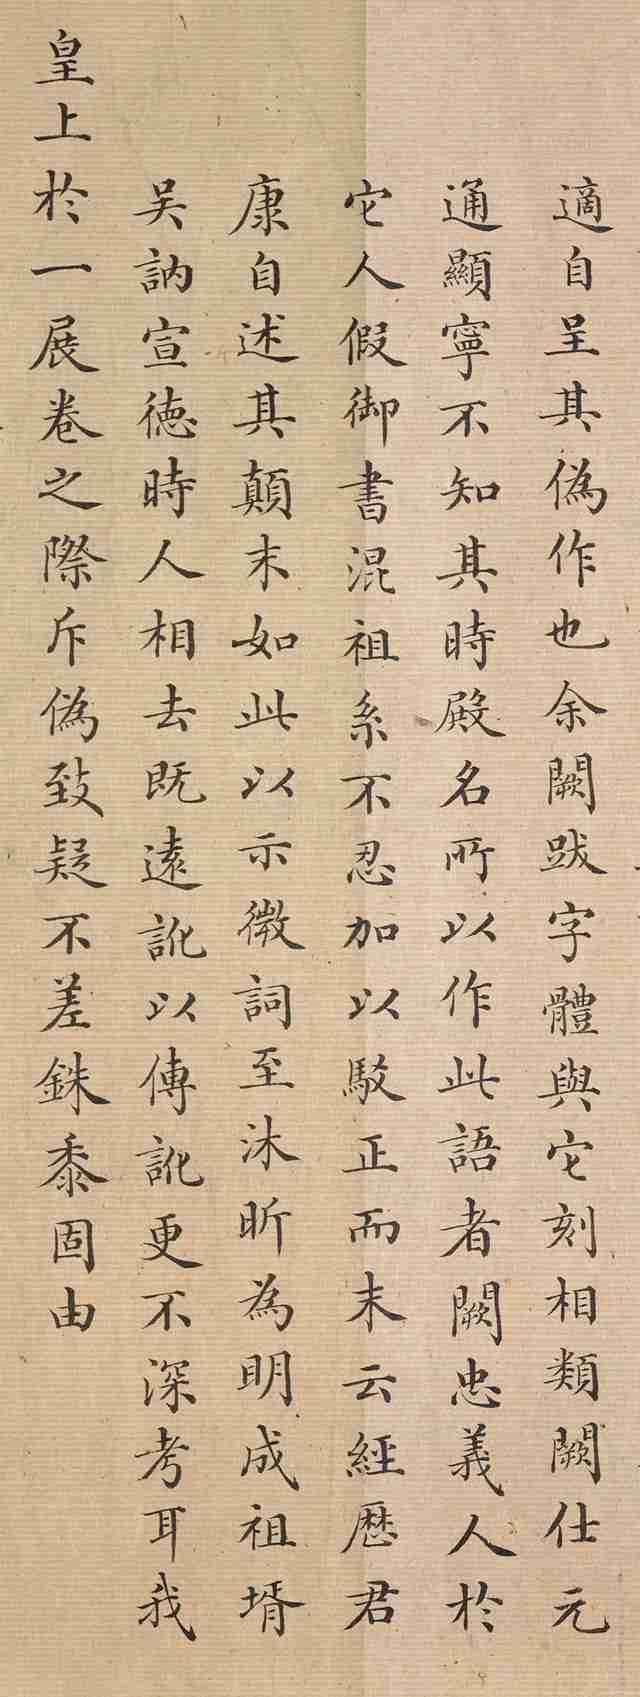 適自呈其偽作也余闕跋字體與它刻相類闕仕元
通顯寧不知其時殿名所以作此語者闕忠義人於
它人假御書混祖系不忍加以駁正而末云經歷君
康自述其顛末如此以示微詞至沐昕為明成祖壻
吴訥宣德時人相去既遠訛以傳訛更不深考耳我
皇上於一展卷之際斥偽致疑不差銖黍固由